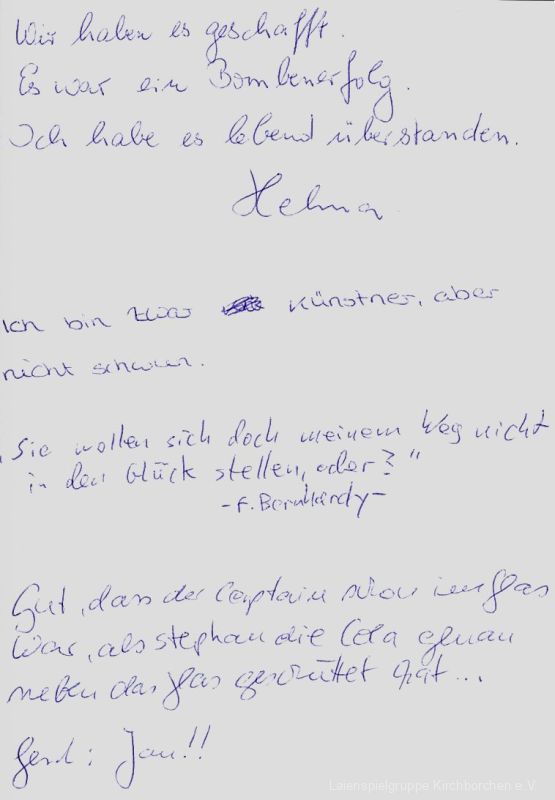 Wir haben es geschafft.
Es war ein Bombenerfolg.
Ich habe es lebend überstanden.
Helma
Ich bin zwar Künstner, aber
nicht schwun.
„Sie wollen sich doch meinem Weg nicht
in den Glück stellen, oder?“
- F. Bernhardy -
Gut, dass der Captain schon im Glas
war, als Stephan die Cola genau
neben das Glas geschüttet hat...
Gerd: Jau!!
Laienspielgruppe Kirchborchen e.V.